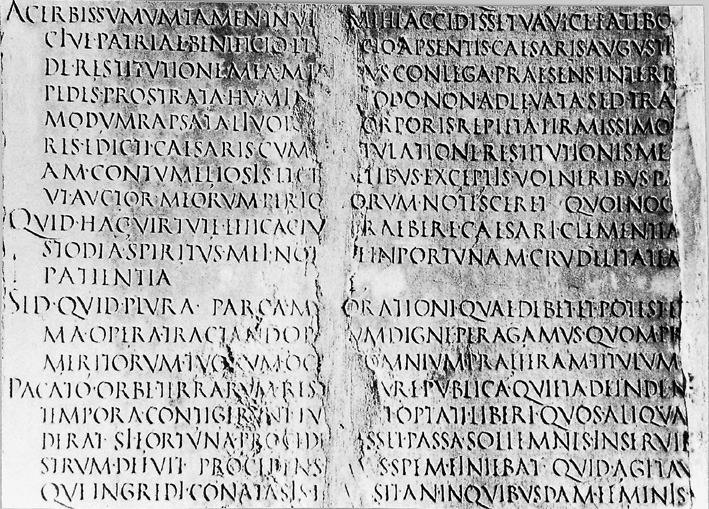 ACERBISSVMVM·TAMEN·IN·VI MIHI·ACCIDISSE·TVA·VICE·FATEBO
CIVE·PATRIAE·BENIFICIO·ET CIO·APSENTIS·CAESARIS·AVGVSTI
DE·RESTITVTIONE·MEA·M VS·CONLEGA·PRAESENS·INTERP
PEDES·PROSTRATA·HVMI N ODO·NON·ADLEVATA·SED·TRA
MODVM·RAPSATA·LIVOR ORPORIS·REPLETA·FIRMISSIMO
RIS·EDICTI·CAESARIS·CVM TVLATIONE·RESTITVTIONIS·ME
AM·CONTVMELIOSIS·ET·C EPTIS·VOLNERIBVS·PA
VT·AVCTOR·MEORVM·PERIC ORVM·NOTESCERET QVOI·NOC
QVID·HAC·VIRTVTE·EFFICACIV RAEBERE·CAESARI·CLEMENTIA
STODIA·SPIRITVS·MEI·NOT INPORTVNAM·CRVDELITATEM
PATIENTIA
SED·QVID·PLVRA· PARCAM ORATIONI·QVAE·DEBET·ET·POTEST·E
MA·OPERA·TRACTANDO·P VM·DIGNE·PERAGAMVS·QVOM·PR
MERITORVM·TVORVM·OC OMNIVM·PRAEFERAM·TITVLVM
PACATO·ORBE·TERRARVM·RES RE·PVBLICA·QVIETA·DEINDE·N
TEMPORA·CONTIGERVNT·FV OPTATI·LIBERI·QVOS·ALIQVA
DERAT·SI·FORTVNA·PROCEDE ESSET·PASSA·SOLLEMNIS·INSERVIE
STRVM·DEFVIT· PROCEDENS S·SPEM·FINIEBAT QVID·AGITAV
QVE·INGREDI·CONATA·SIS F SIT·AN·IN·QVIBVSDAM·FEMINIS